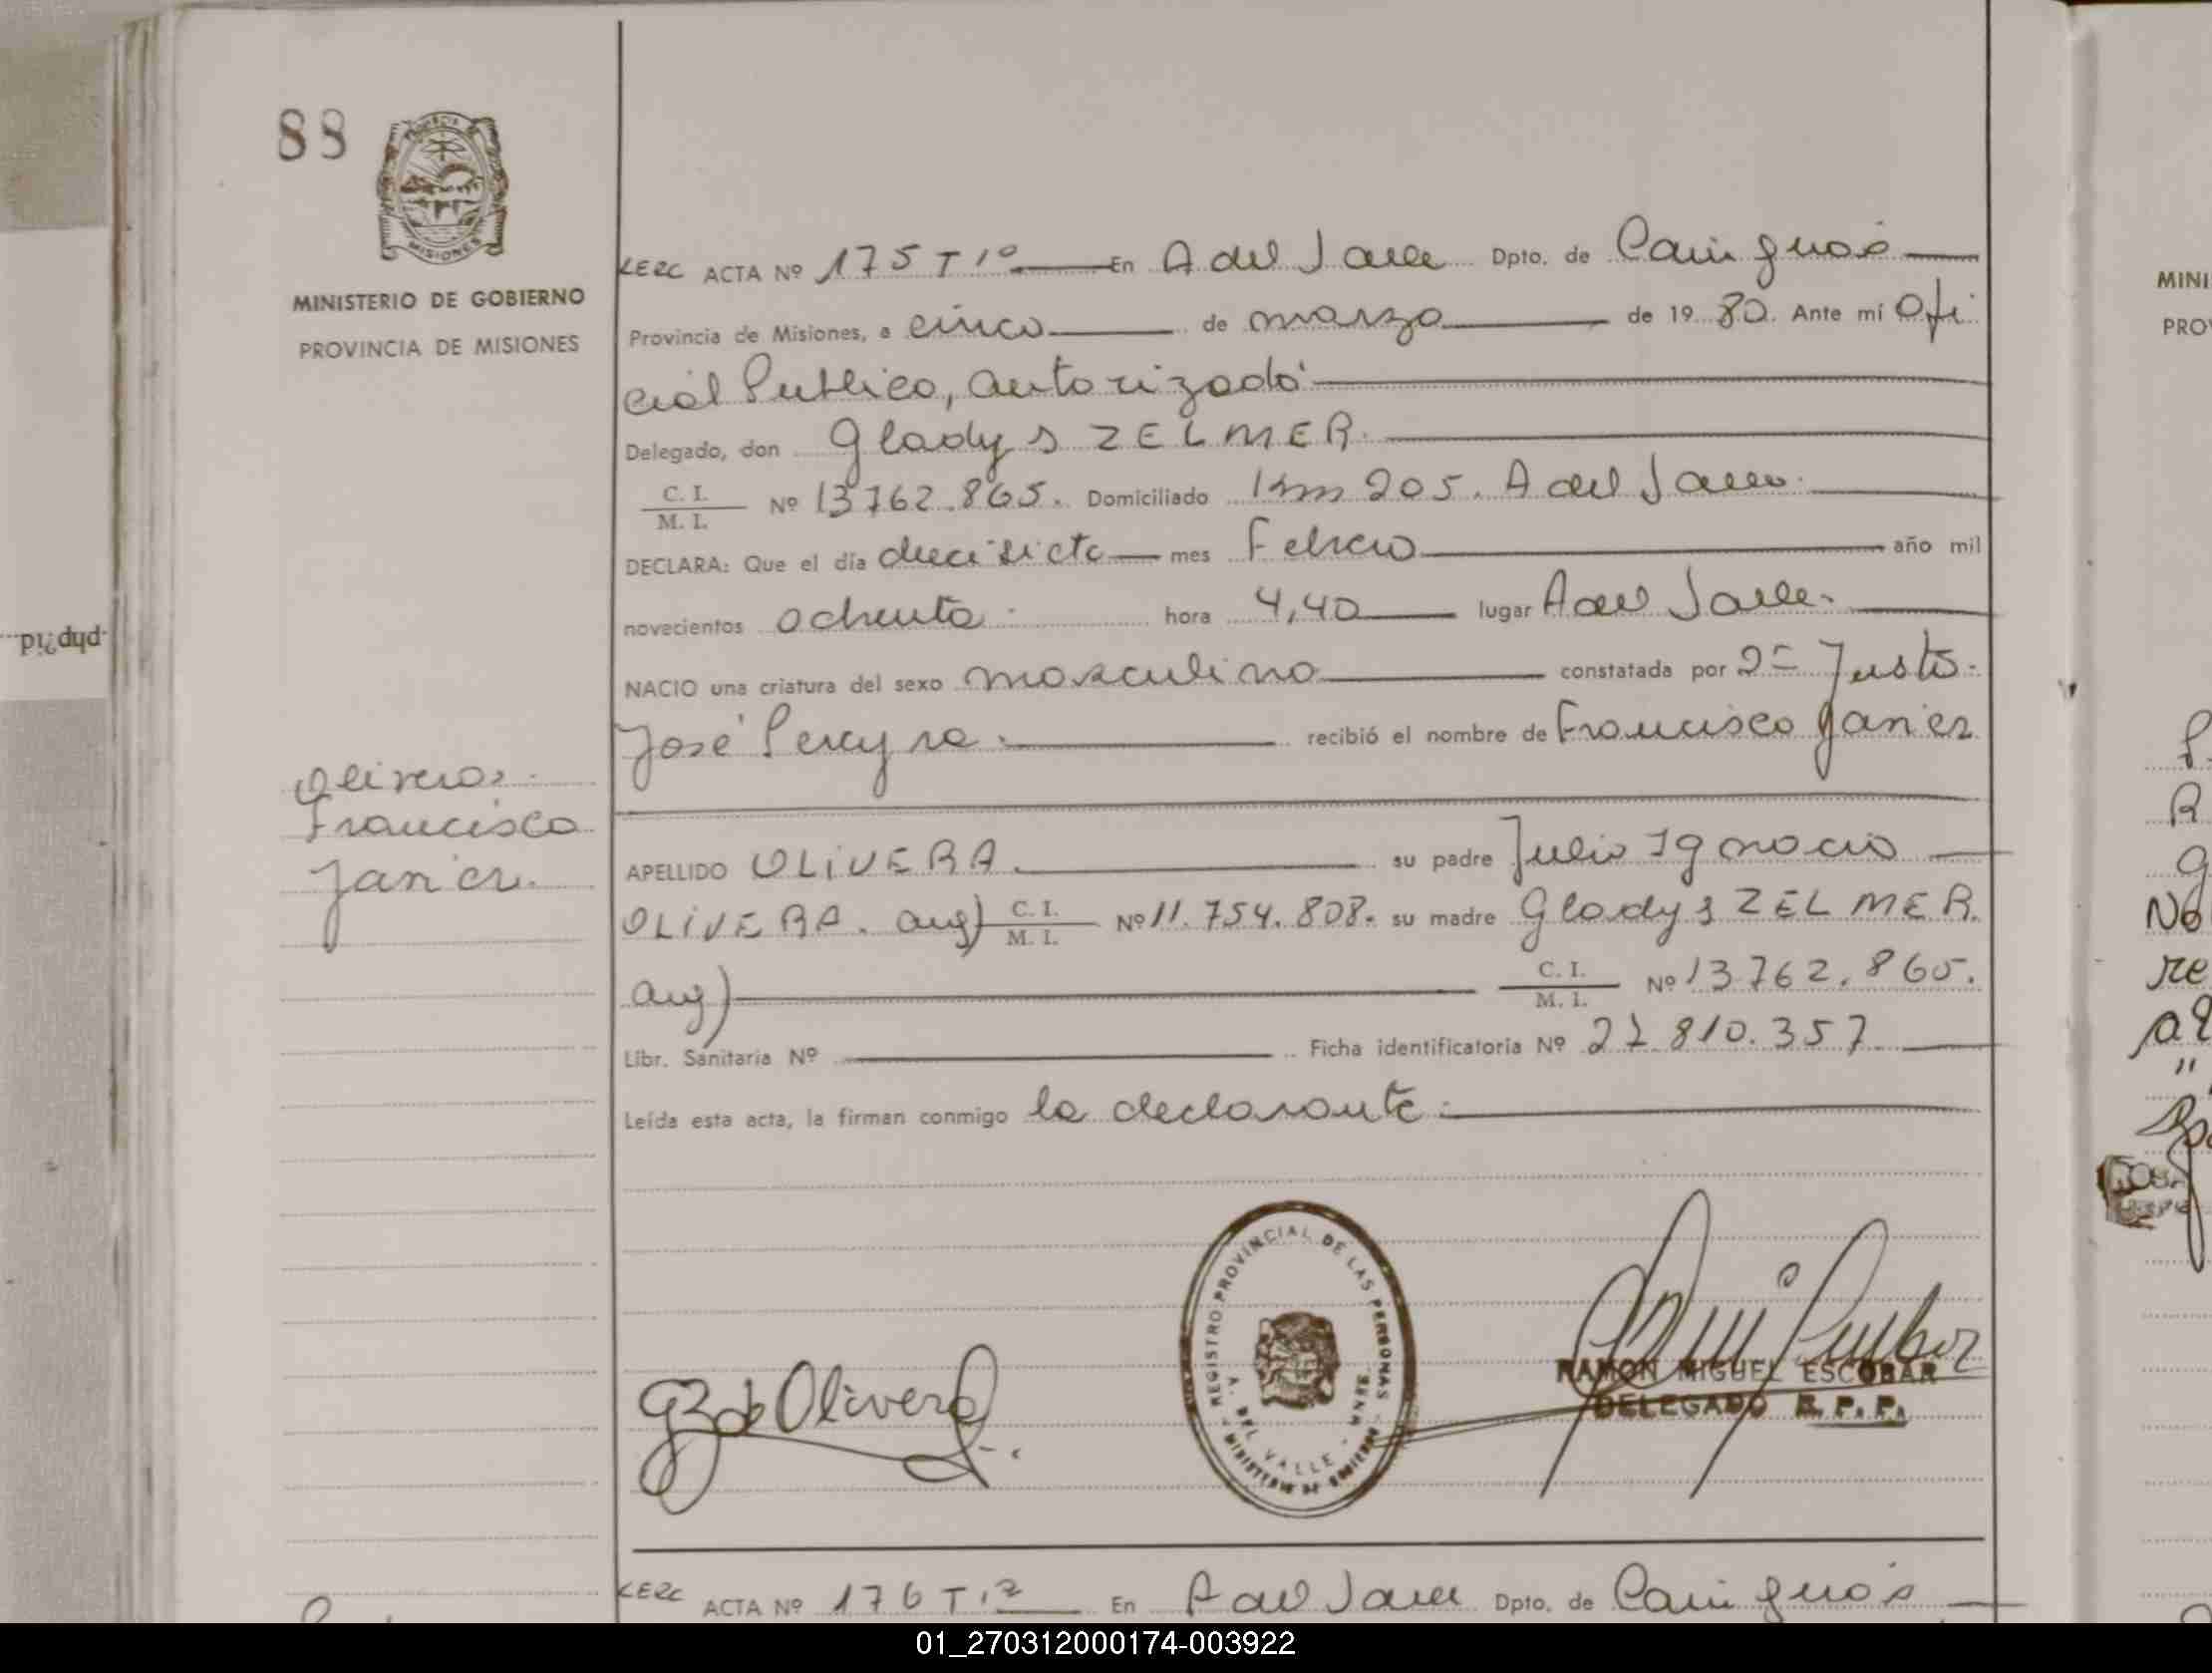 88
MISIONES
MINISTERIO DE GOBIERNO
PROVINCIA DE MISIONES
Olivera.
Francisco
Javier.
LERC ACTA Nº 175 T 1º En A del Valle Dpto. de Cainguás
Provincia de Misiones, a cinco de marzo de 19 80. Ante mí Ofi
cial Publico, autorizado
Delegado, don Gladys ZELMER.
C. I.
M. I. Nº 13762.865. Domiciliado Km 205. A del Valle.
DECLARA: Que el día diecisiete mes Febrero año mil
novecientos ochenta. hora 4,40 lugar A del Valle.
NACIO una criatura del sexo masculino constatada por Dr Justo
José Pereyra. recibió el nombre de Francisco Javier
APELLIDO OLIVERA. su padre Julio Ignacio
OLIVERA. arg) C. I.
M. I. Nº 11.754.808. su madre Gladys ZELMER.
arg) C. I.
M. I. Nº 13762.865.
Libr. Sanitaria Nº Ficha identificatoria Nº 27.810.357
Leída esta acta, la firman conmigo la declarante.
GZ de Olivera
REGISTRO PROVINCIAL DE LAS PERSONAS
A. DEL VALLE - MNES.
MINISTERIO DE GOBIERNO
RAMON MIGUEL ESCOBAR
DELEGADO R. P. P.
LERC ACTA Nº 176 T. 1º En A del Valle Dpto. de Cainguás
.php?id...
MINI
PRO
01_270312000174-003922